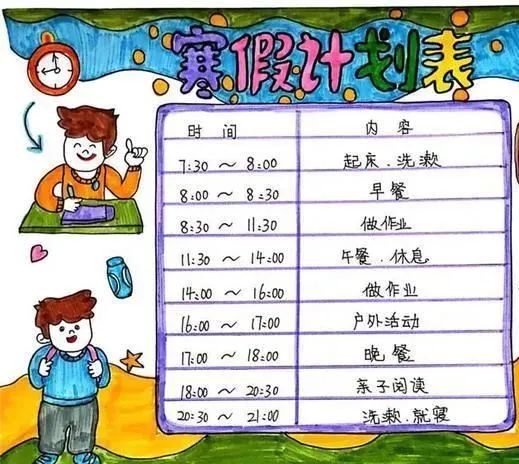 寒假计划表
时间 内容
7:30 ~ 8:00 起床.洗漱
8:00 ~ 8:30 早餐
8:30 ~ 11:30 做作业
11:30 ~ 14:00 午餐.休息
14:00 ~ 16:00 做作业
16:00 ~ 17:00 户外活动
17:00 ~ 18:00 晚餐
18:00 ~ 20:30 亲子阅读
20:30 ~ 21:00 洗漱.就寝